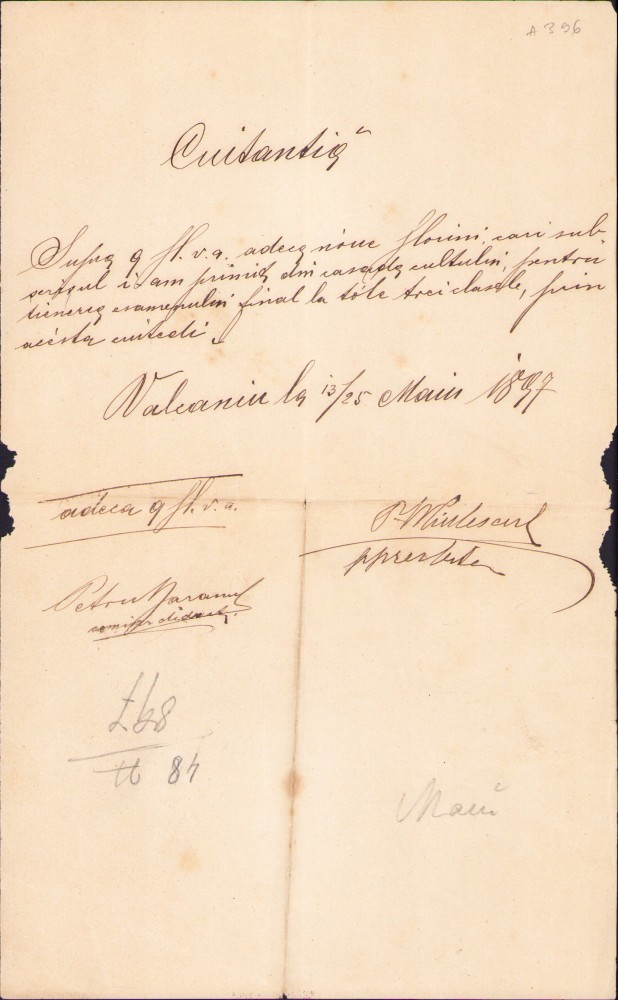 A 396
Cuitantiă
Supra 9 fl. v. a. adecă nóue florini, cari sub-
scrisul i-am primit din casa de cultului, pentru
tienerea esamenului final la tóte trei clasele, prin
acésta cuitedi.
Valcaniu la 13/25 Maiu 1897
adeca 9 fl. v. a.
P. Miulescul
ppresbiter
Petru
84
Maiu